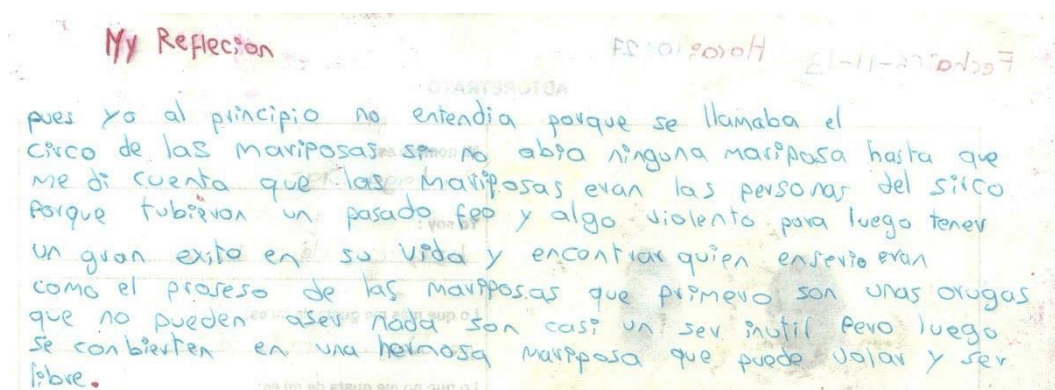 My Reflecion
Fecha: 14-11-13 Hora: 10:27
AUTORETRATO
pues yo al principio no entendia porque se llamaba el
circo de las mariposas si no abia ninguna mariposa hasta que
me di cuenta que las mariposas eran las personas del sirco
porque tubieron un pasado feo y algo violento para luego tener
un gran exito en su vida y encontrar quien enserio eran
como el proseso de las mariposas que primero son unas orugas
que no pueden aser nada son casi un ser inutil pero luego
se conbierten en una hermosa mariposa que puede volar y ser
libre.